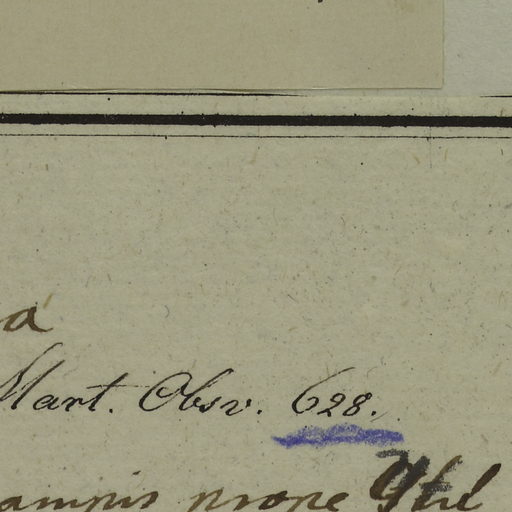 a
Mart. Obsv. 628.
campis prope Ytu